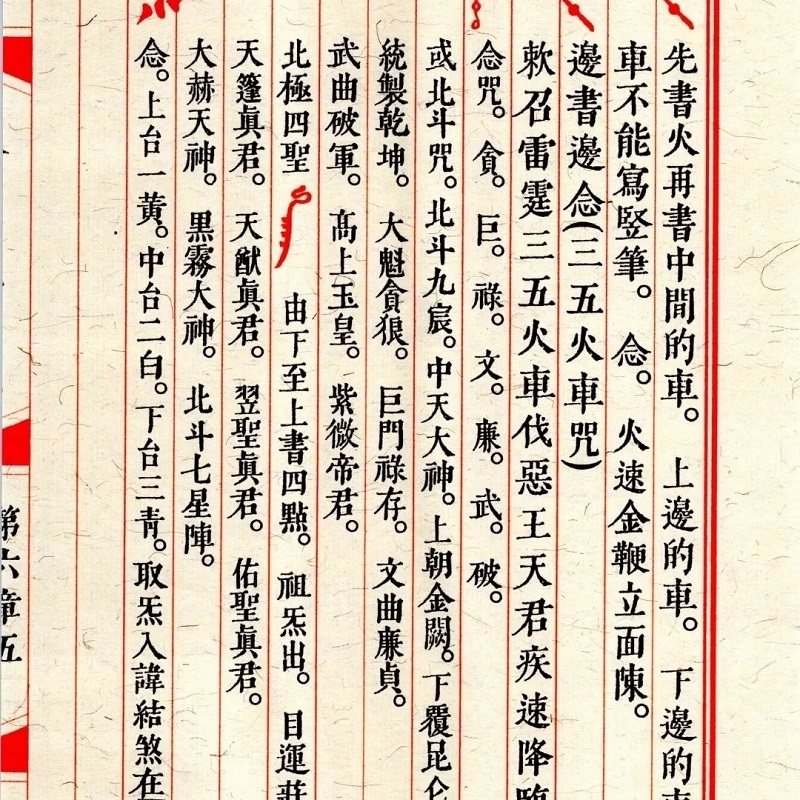 先書火再書中間的車。　上邊的車。　下邊的
車不能寫竪筆。　念。　火速金鞭立面陳。
邊書邊念(三五火車咒)
欶召雷霆三五火車伐惡王天君疾速降臨
念咒。貪。巨。祿。文。廉。武。破。
或北斗咒。北斗九宸。中天大神。上朝金闕。下覆昆仑
統製乾坤。　大魁貪狼。　巨門祿存。　文曲廉貞。
武曲破軍。　髙上玉皇。　紫微帝君。
北極四聖　由下至上書四點。　祖炁出。　目運
天篷眞君。　天猷眞君。　翌聖眞君。　佑聖眞君。
大赫天神。　黒霧大神。　北斗七星陣。
念。上台一黄。中台二白。下台三青。取炁入諱結煞在
第六章五